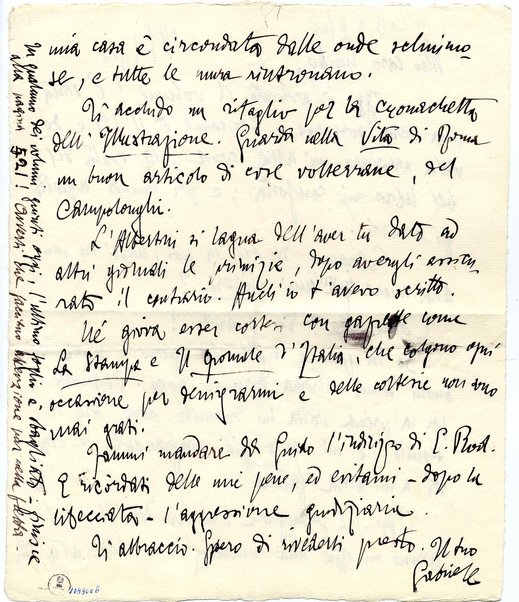 mia casa è circondata dalle onde schiumo-
se, e tutte le mura rintronano.
Ti accludo un ritaglio per la cronachetta
dell'Illustrazione. Guarda nella Vita di Roma
un buon articolo di cose volterrane, del
Campolonghi.
L'Albertini si lagna dell'aver tu dato ad
altri giornali le primizie, dopo avergli assicu-
rato il contrario. Anch'io t'avevo scritto.
Né giova esser cortesi con gazzette come
La Stampa e Il Giornale d'Italia, che colgono ogni
occasione per denigrarmi e delle cortesie non sono
mai grati.
Fammi mandare da Guido l'indirizzo di E. Rod.
E ricordati delle mie pene, ed evitami - dopo la
libecciata - l'aggressione giudiziaria.
Ti abbraccio. Spero di rivederti presto. Il tuo
Gabriele
In qualcuno dei volumi giunti oggi, l'ultimo foglio è sbagliato: finisce
alla pagina 521! Avverti che facciano attenzione per nella
1099006